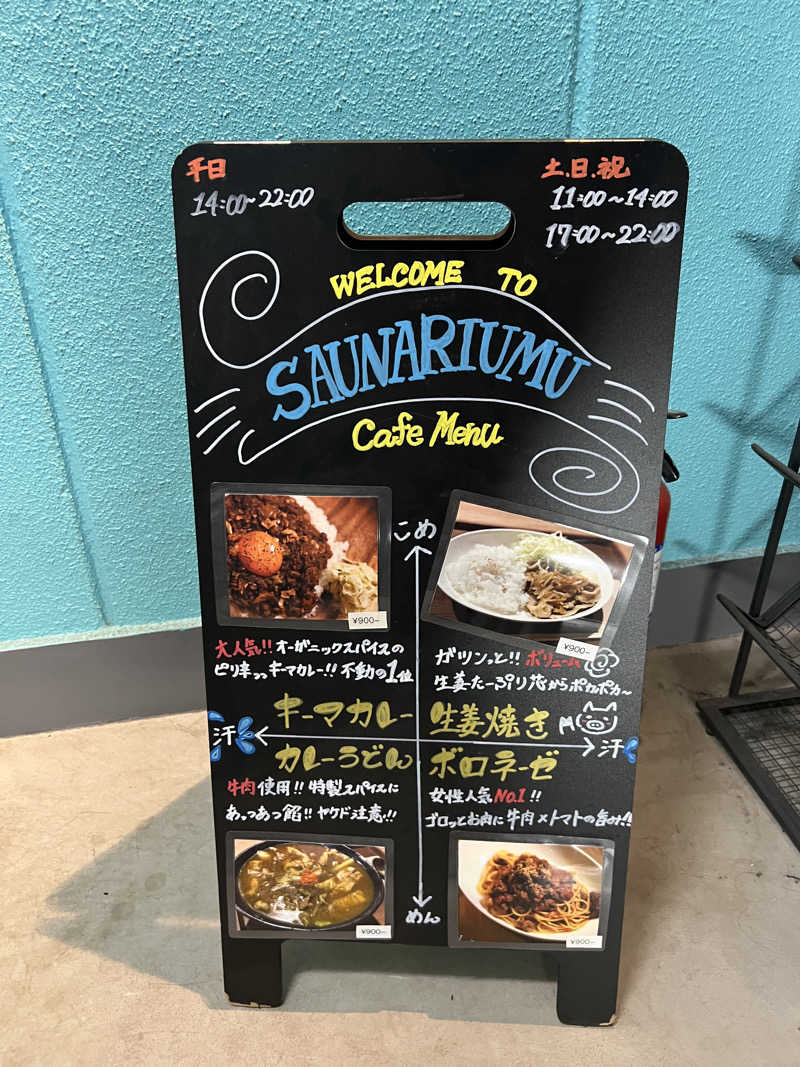 平日
14:00~22:00
土.日.祝
11:00~14:00
17:00~22:00
WELCOME TO
SAUNARIUMU
Cafe Menu
こめ
¥900-
¥900-
大人気!! オーガニックスパイスの
ピリ辛っっキーマカレー!! 不動の1位
ガツンッと!! ボリューム
生姜たーぷり芯からポカポカ~
キーマカレー
生姜焼き
汗
汗
カレーうどん
ボロネーゼ
牛肉使用!! 特製スパイスに
あっつあつ餡!! ヤケド注意!!
女性人気No.1!!
ゴロッとお肉に牛肉×トマトの旨み!!
めん
¥900-
¥900-